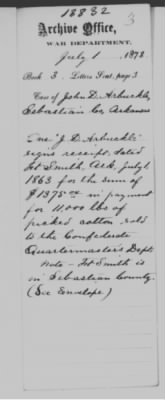 18832
3
Archive Office,
WAR DEPARTMENT.
July 1, 1878.
Book 3. Letters Sent, page 3
Case of John D. Arbuckle,
Sebastian Co, Arkansas
One "J. D. Arbuckle"
signs receipt, dated
Ft Smith, Ark, July 1,
1863 for the sum of
$1375.00 in payment
for 11000 lbs of
picked cotton sold
to the Confederate
Quartermaster's Dept.
Note - Ft Smith is
in Sebastian County.
(See Envelope)